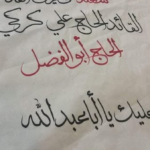 القائد الحاج علي كركي
الحاج أبو الفضل
عليك يا أبا عبد الله